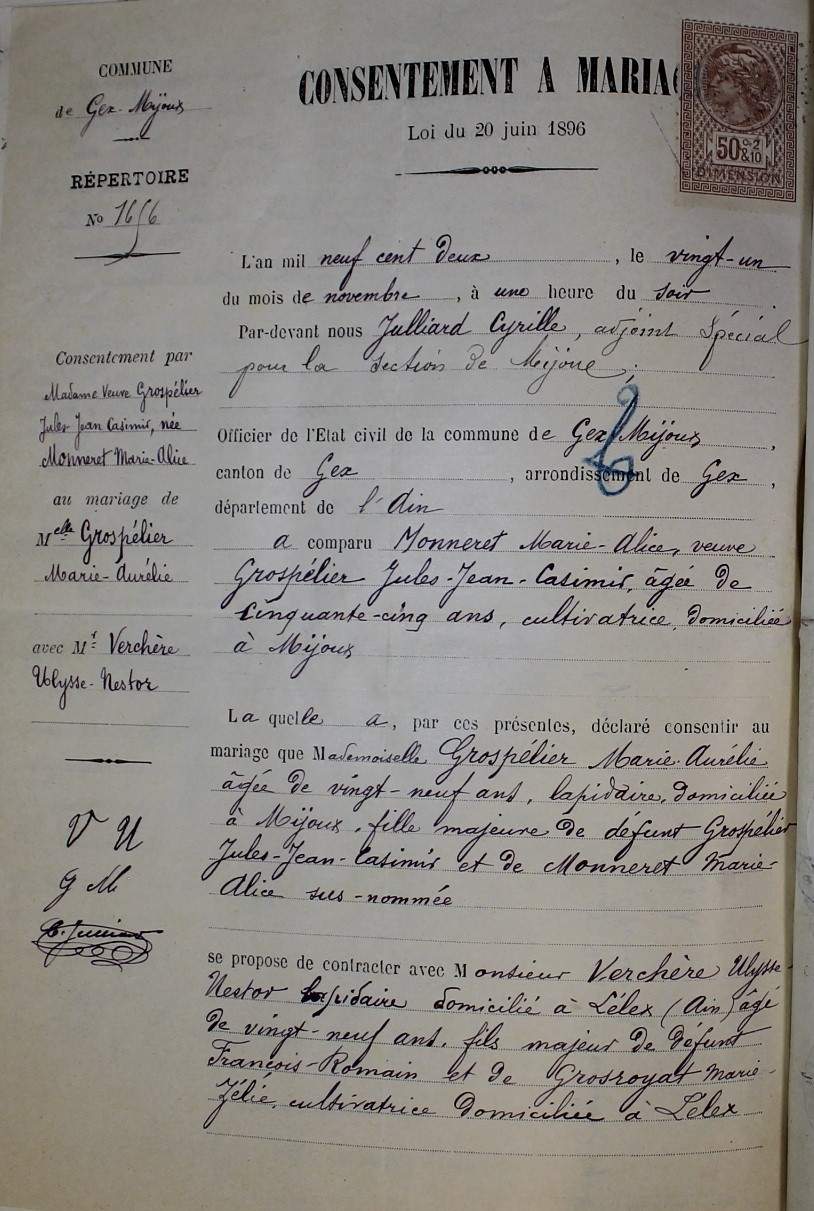 COMMUNE
de Gex-Mijoux
RÉPERTOIRE
No
Consentement par
Madame Veuve Grospélier
Jules Jean Casimir, née
Monneret Marie-Alice
au mariage de
Melle Grospélier
Marie-Aurélie
avec Mr Verchère
Ulysse-Nestor
V U
G M
CONSENTEMENT A MARIAG
Loi du 20 juin 1896
50 c. 2 & 10
DIMENSION
L'an mil neuf cent deux, le vingt-un
du mois de novembre, à une heure du soir
Par-devant nous Julliard Cyrille, adjoint spécial
pour la section de Mijoux,
Officier de l'Etat civil de la commune de Gex-Mijoux,
canton de Gex, arrondissement de Gex,
département de l'Ain
a comparu Monneret Marie-Alice, veuve
Grospélier Jules-Jean-Casimir, âgée de
cinquante-cinq ans, cultivatrice, domiciliée
à Mijoux
La quelle a, par ces présentes, déclaré consentir au
mariage que Mademoiselle Grospélier Marie-Aurélie
âgée de vingt-neuf ans, lapidaire, domiciliée
à Mijoux, fille majeure de défunt Grospélier
Jules-Jean-Casimir et de Monneret Marie-
Alice sus-nommée
se propose de contracter avec Monsieur Verchère Ulysse-
Nestor lapidaire domicilié à Lélex (Ain) âgé
de vingt-neuf ans, fils majeur de défunt
François-Romain et de Grosroyat Marie-
Zélie, cultivatrice domiciliée à Lélex